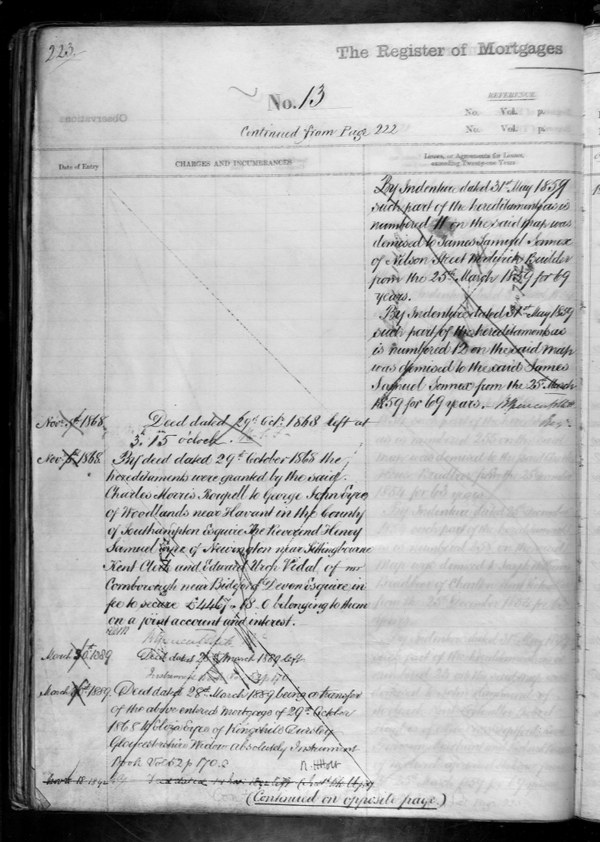 223.
The Register of Mortgages
No. 13
REFERENCE
No. Vol. p.
No. Vol. p.
Continued from Page 222
Date of Entry
CHARGES AND INCUMBRANCES
Leases, or Agreements for Leases,
exceeding Twenty-one Years
By Indenture dated 31st May 1859
such part of the hereditaments as is
numbered 11 on the said map was
demised to James Samuel
of Nelson Street Builder
from the 25th March 1859 for 69
years.
By Indenture dated 31st May 1859
such part of the hereditaments as
is numbered 12 on the said map
was demised to the said James
Samuel from the 25th March
1859 for 69 years.
Nov. 1868 Deed dated 29th Oct. 1868 left at
3.15 o'clock.
Nov. 1868 By deed dated 29th October 1868 the
hereditaments were granted by the said
Charles Morris Roupell to George John Eyre
of Woodlands near Havant in the County
of Southampton Esquire The Reverend Henry
Samuel Eyre of Newington near Sittingbourne
Kent Clerk and Edward Urch Vidal of
Cornborough near Bideford Devon Esquire in
fee to secure £4467. 18. 0 belonging to them
on a joint account and interest.
March 1889 Deed dated 28th March 1889 left
March 1889. Deed dated 28th March 1889 being a transfer
of the above entered mortgage of 29th October
1868 to Eliza Eyre of Kingshill Dursley
Gloucestershire Widow absolutely Instrument
Book Vol 52 p 170.
(Continued on opposite page.)